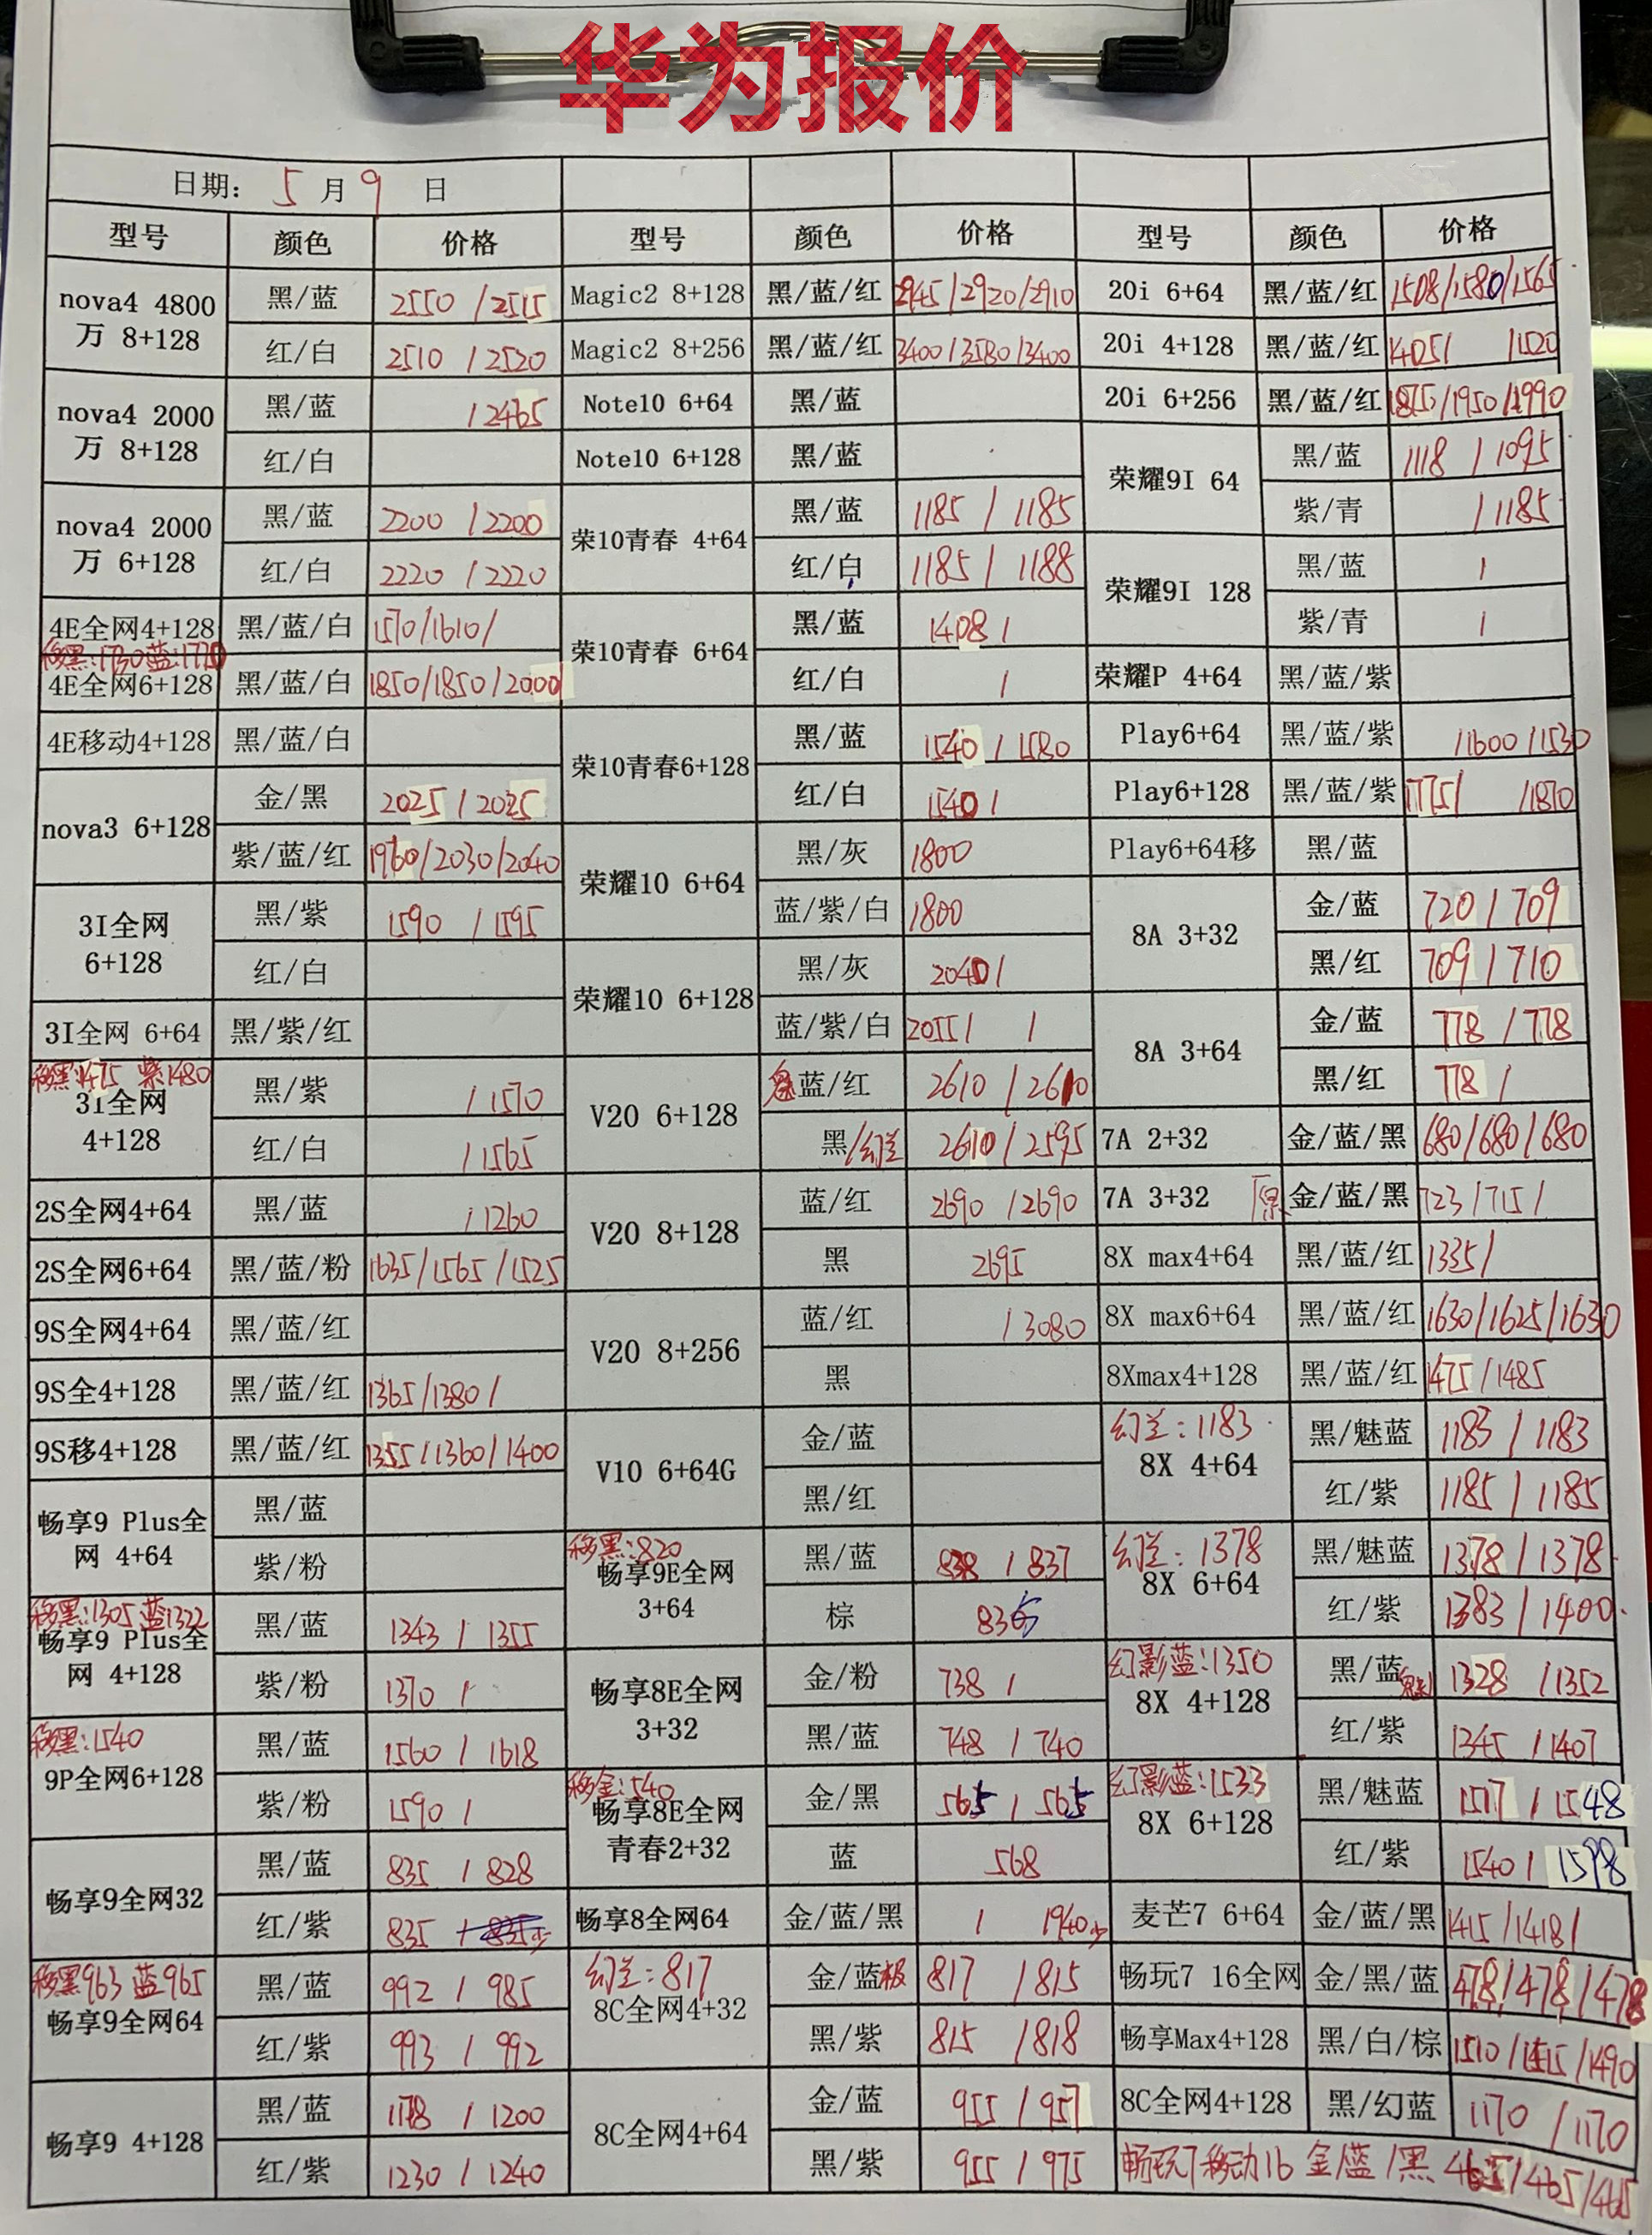 华为报价
日期: 5 月 9 日
型号 颜色 价格 型号 颜色 价格 型号 颜色 价格
nova4 4800万 8+128 黑/蓝 2550 /2515 Magic2 8+128 黑/蓝/红 2945/2920/2910 20i 6+64 黑/蓝/红 1508/1580/1565
红/白 2510 /2520 Magic2 8+256 黑/蓝/红 3400/3580/3400 20i 4+128 黑/蓝/红 1405/ /1520
nova4 2000万 8+128 黑/蓝 /2465 Note10 6+64 黑/蓝 20i 6+256 黑/蓝/红 /1950/1990
红/白 Note10 6+128 黑/蓝 荣耀9I 64 黑/蓝 1118 / 1095
nova4 2000万 6+128 黑/蓝 2200 /2200 荣10青春 4+64 黑/蓝 1185 / 1185 紫/青 / 1185
红/白 2220 /2220 红/白 1185 / 1188 荣耀9I 128 黑/蓝 /
4E全网4+128 黑/蓝/白 1570/1610/ 荣10青春 6+64 黑/蓝 1408 / 紫/青 /
移黑:1730 蓝:1770
4E全网6+128 黑/蓝/白 1850/1850/2000 红/白 / 荣耀P 4+64 黑/蓝/紫
4E移动4+128 黑/蓝/白 荣10青春6+128 黑/蓝 1540 / 1580 Play6+64 黑/蓝/紫 /1600/1530
nova3 6+128 金/黑 2025 / 2025 红/白 1540 / Play6+128 黑/蓝/紫 1775/ /1870
紫/蓝/红 1960/2030/2040 荣耀10 6+64 黑/灰 1800 Play6+64移 黑/蓝
3I全网 6+128 黑/紫 1590 / 1595 蓝/紫/白 1800 8A 3+32 金/蓝 720 / 709
红/白 荣耀10 6+128 黑/灰 2040 / 黑/红 709 / 710
3I全网 6+64 黑/紫/红 蓝/紫/白 2055/ / 8A 3+64 金/蓝 778 / 778
移黑:1475 紫1480
3I全网 4+128 黑/紫 / 1570 V20 6+128 魅蓝/红 2610 / 2610 黑/红 778 /
红/白 / 1565 黑/幻兰 2610 / 2595 7A 2+32 金/蓝/黑 680/680/680
2S全网4+64 黑/蓝 / 1260 V20 8+128 蓝/红 2690 /2690 7A 3+32 原 金/蓝/黑 723/715/
2S全网6+64 黑/蓝/粉 1635/1565/1525 黑 2695 8X max4+64 黑/蓝/红 1335/
9S全网4+64 黑/蓝/红 V20 8+256 蓝/红 / 3080 8X max6+64 黑/蓝/红 1630/1625/1630
9S全4+128 黑/蓝/红 1365/1380/ 黑 8Xmax4+128 黑/蓝/红 1475/1485
9S移4+128 黑/蓝/红 1355/1360/1400 V10 6+64G 金/蓝 幻兰:1183 8X 4+64 黑/魅蓝 1183 / 1183
畅享9 Plus全网 4+64 黑/蓝 黑/红 红/紫 1185 / 1185
紫/粉 移黑:820 畅享9E全网 3+64 黑/蓝 838 / 837 幻兰:1378 8X 6+64 黑/魅蓝 1378 / 1378
移黑:1305 蓝1322
畅享9 Plus全网 4+128 黑/蓝 1343 / 1355 棕 836 红/紫 1383 / 1400
紫/粉 1370 / 畅享8E全网 3+32 金/粉 738 / 幻影蓝:1350 8X 4+128 黑/蓝魅 1328 /1352
移黑:1540
9P全网6+128 黑/蓝 1560 / 1618 黑/蓝 748 / 740 红/紫 1345 /1407
紫/粉 1590 / 移金:540 畅享8E全网 青春2+32 金/黑 565 / 565 幻影蓝:1533 8X 6+128 黑/魅蓝 1517 / 1548
畅享9全网32 黑/蓝 835 / 828 蓝 568 红/紫 1540 / 1598
红/紫 835 畅享8全网64 金/蓝/黑 / 1940少 麦芒7 6+64 金/蓝/黑 1415/1418/
移黑963 蓝965
畅享9全网64 黑/蓝 992 / 985 幻兰:817 8C全网4+32 金/蓝极 817 /815 畅玩7 16全网 金/黑/蓝 478/478/478
红/紫 993 / 992 黑/紫 815 /818 畅享Max4+128 黑/白/棕 1510/1515/1490
畅享9 4+128 黑/蓝 1178 / 1200 8C全网4+64 金/蓝 955 / 957 8C全网4+128 黑/幻蓝 1170 /1170
红/紫 1230 / 1240 黑/紫 955 / 975 畅玩7移动16 金/蓝/黑 465/465/465